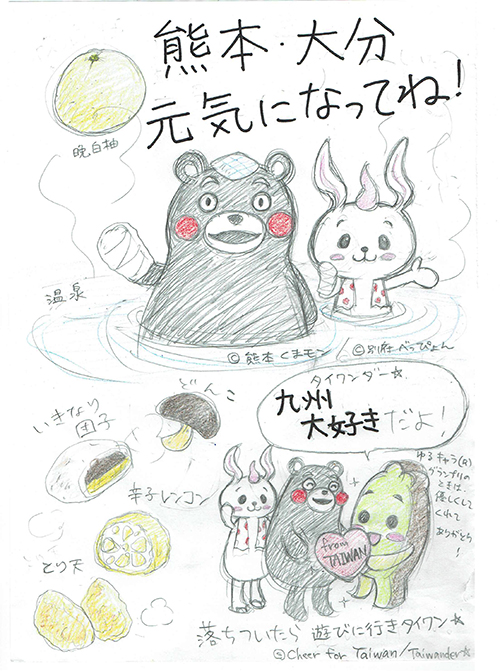 熊本・大分
元気になってね!
晩白柚
温泉
©熊本くまモン/©別府べっぴょん
どんこ
いきなり
団子
辛子レンコン
とり天
タイワンダー☆
九州
大好きだよ!
ゆるキャラ(R)
グランプリの
ときは、
優しくして
くれて
ありがとう!
from
TAIWAN
落ちついたら 遊びに行きタイワン☆
©Cheer for Taiwan/Taiwander☆